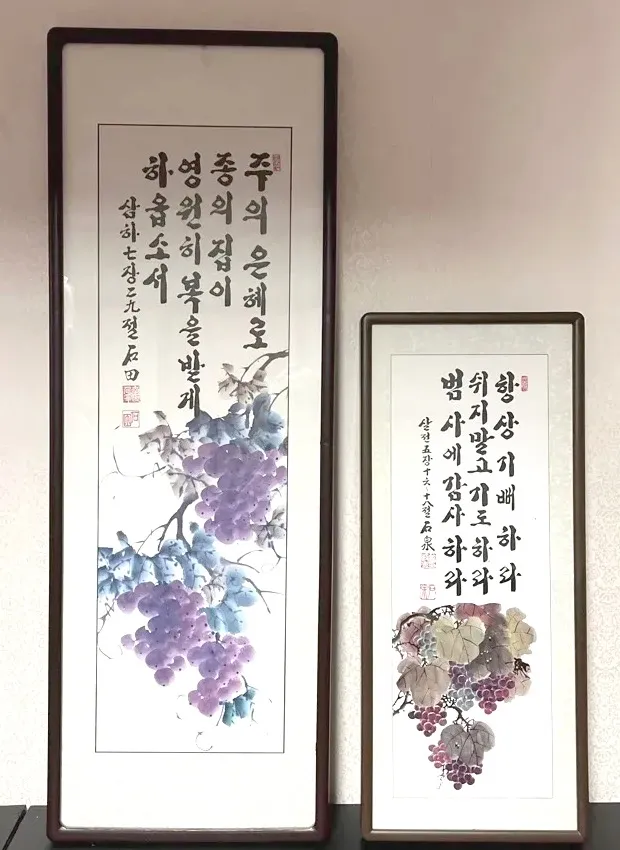 주의 은혜로
종의 집이
영원히 복을 받게
하옵소서
삼하七장二九절 石田
항상 기뻐 하라
쉬지말고 기도 하라
범사에 감사 하라
살전五장十六~十八절 石泉